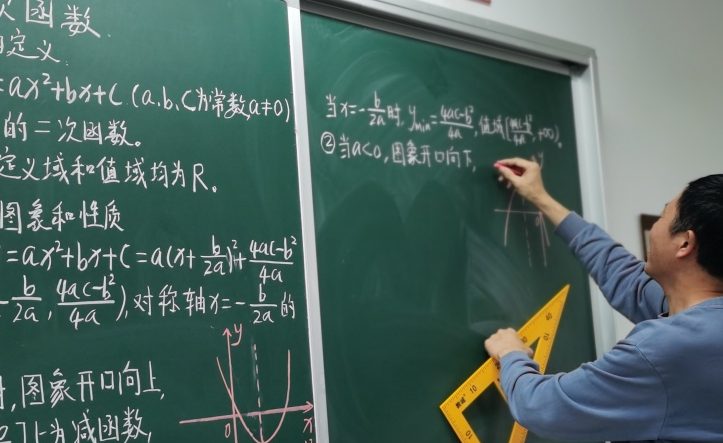 次函数
的定义
=ax²+bx+c (a、b、c为常数,a≠0)
的二次函数。
定义域和值域均为R。
图象和性质
=ax²+bx+c=a(x+b/2a)²+4ac-b²/4a
-b/2a, 4ac-b²/4a), 对称轴x=-b/2a的
时,图象开口向上,
上为减函数,
y
0
x
当x=-b/2a时, y_min=4ac-b²/4a, 值域[4ac-b²/4a, +∞)。
②当a<0,图象开口向下,
y